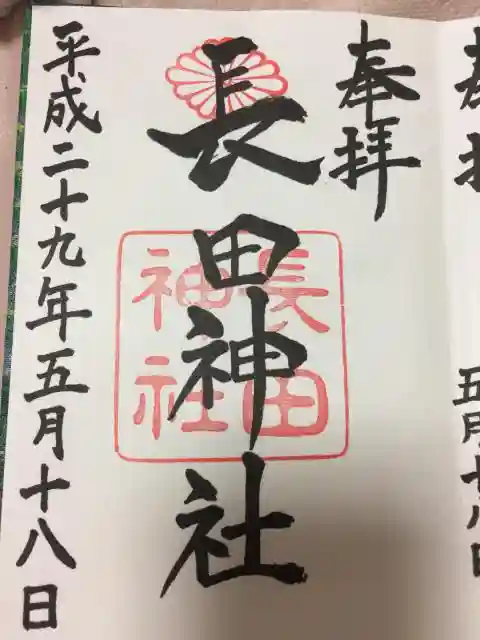 奉拝
長田神社
長田
神社
平成二十九年五月十八日